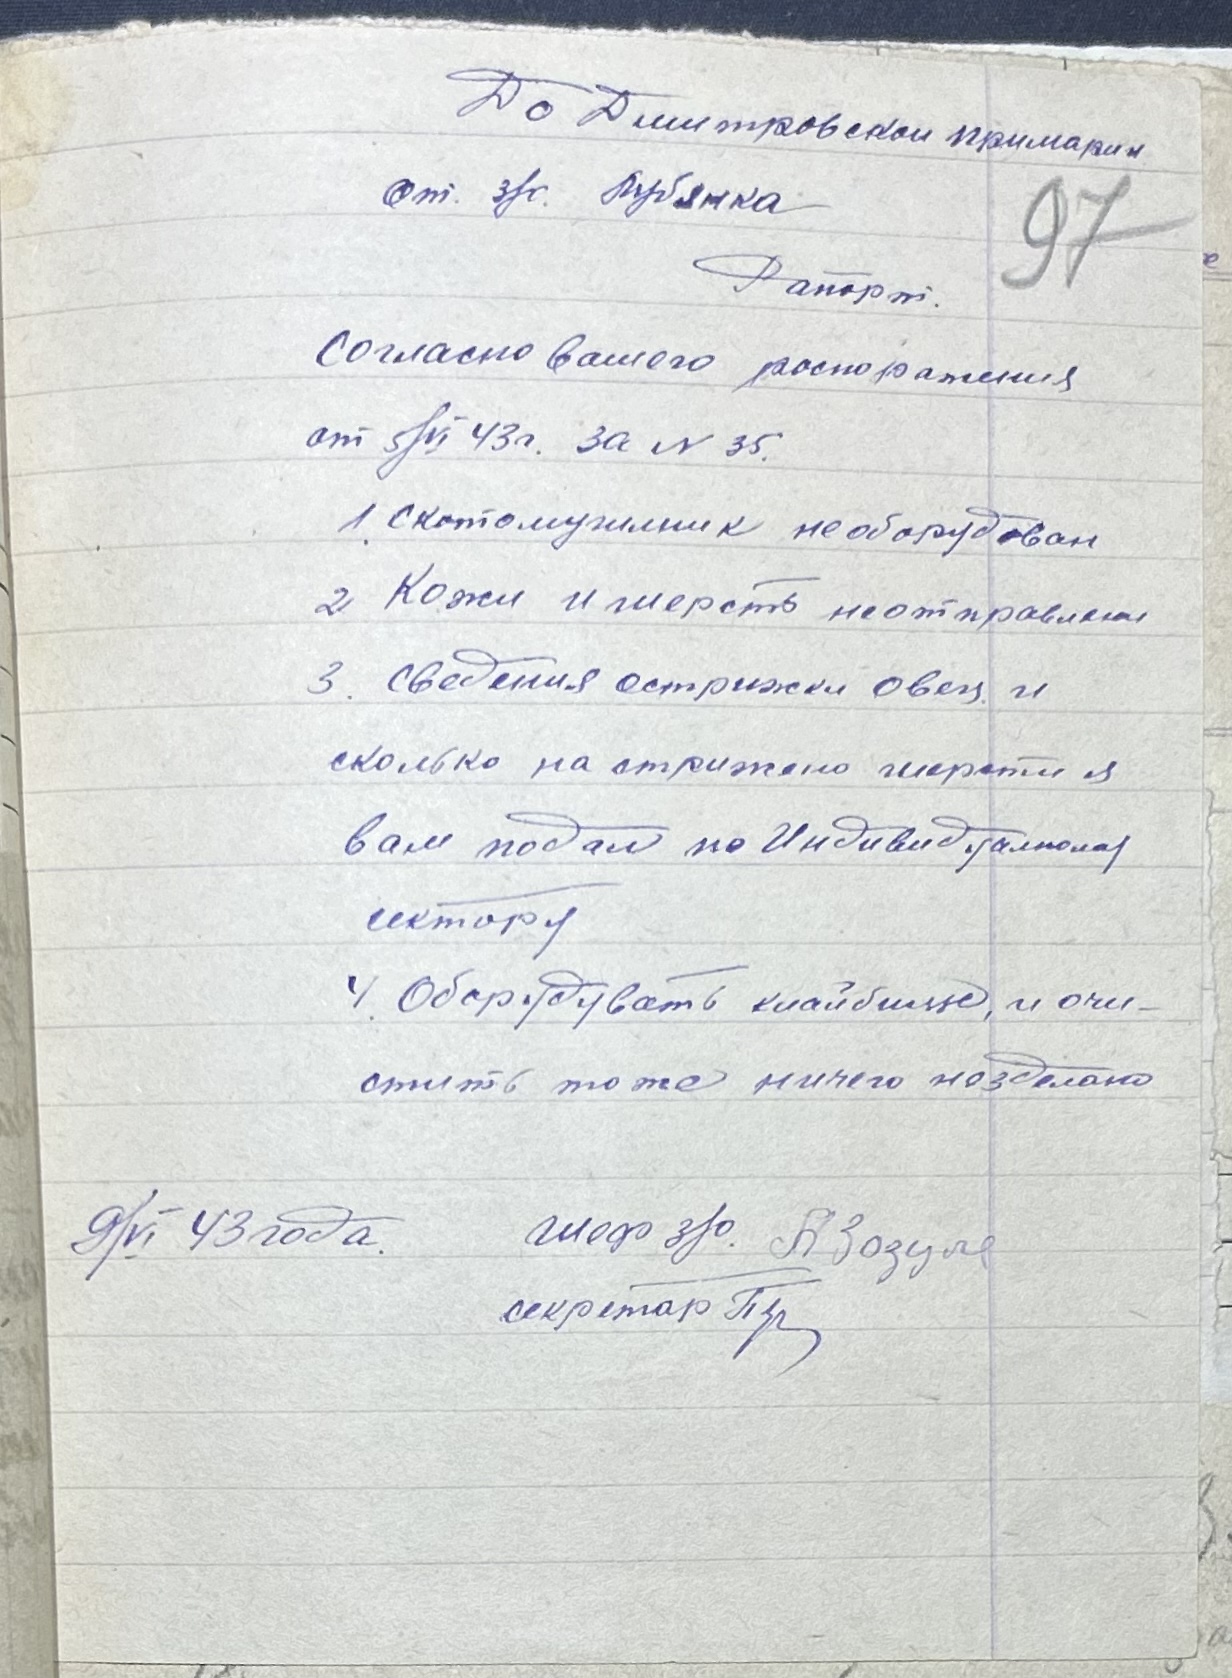 До Дмитровской примарии
от. з/о. Лубянка
97
Рапорт.
Согласно вашего роспоражения
от 5/VI 43г. За N 35.
1. Скотомугилник необорудован
2 Кожи и шерсть неотправлени
3. Сведения острижки овец и
сколько на стрижено шерсти я
вам подал по Индивидуалному
сектору
4. Оборудувать клайбище, и очи-
стить тоже ничего незделано
9/VI 43 года. шеф з/о. Зозуля
секретар